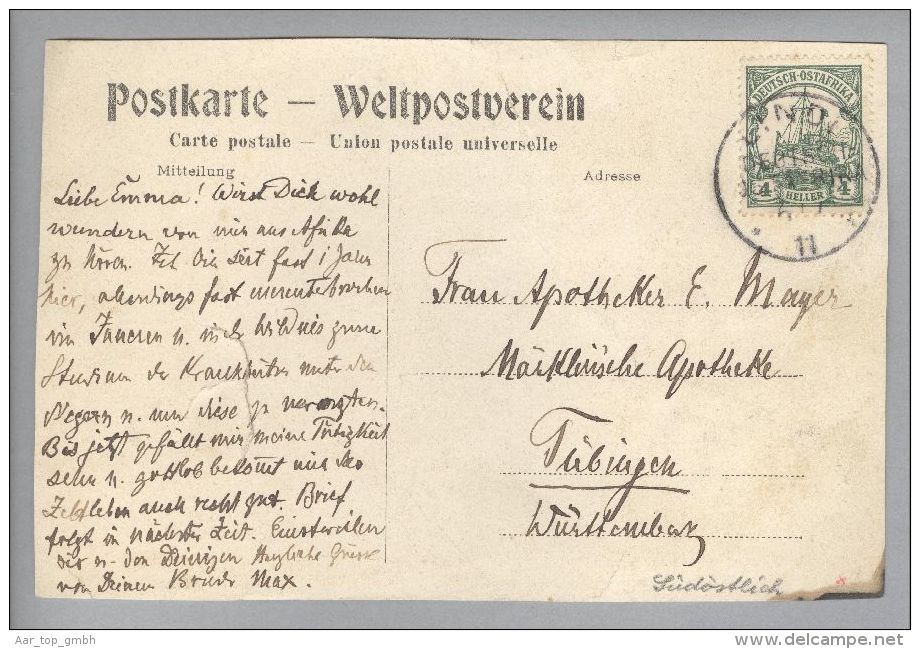 Postkarte — Weltpostverein
Carte postale — Union postale universelle
Mitteilung
Adresse
DEUTSCH-OSTAFRIKA
4 HELLER 4
11
Liebe Emma! Wirst Dich wohl
wundern von mir aus Afrika
zu hören. Ich bin seit fast 1 Jahr
hier, allerdings fast ununterbrochen
im Inneren u. in der Wildnis zum
Studium der Krankheiten unter den
Negern u. um diese zu verarzten.
Bis jetzt gefällt mir meine Tätigkeit
sehr u. gottlob bekommt mir das
Zeltleben auch recht gut. Brief
folgt in nächster Zeit. Einstweilen
Dir u. den Deinigen Herzliche Grüsse
von Deinem Bruder Max.
Frau Apotheker E. Mayer
Apotheke
Tübingen
Württemberg
Südöstlich
Aar_top_gmbh
www.delcampe.net